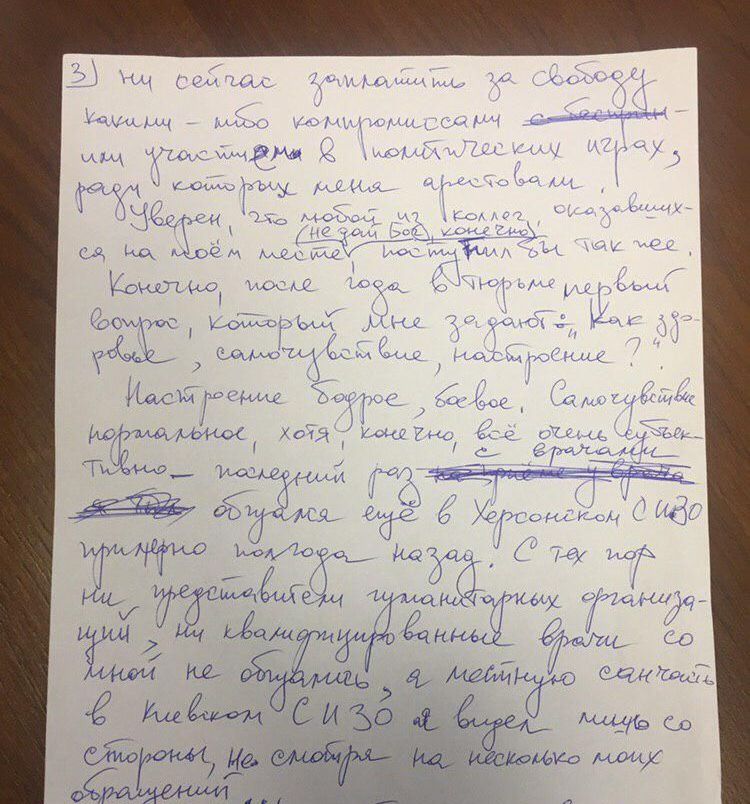 3) ни сейчас заплатить за свободу
какими-либо компромиссами
или участием в политических играх,
ради которых меня арестовали.
Уверен, что любой из коллег, оказавших-
(не дай Бог, конечно)
ся на моём месте, поступил бы так же.
Конечно, после года в тюрьме первый
вопрос, который мне задают: „Как здо-
ровье, самочувствие, настроение?“.
Настроение бодрое, боевое. Самочувствие
нормальное, хотя, конечно, всё очень субъек-
с врачами
тивно – последний раз на приёме у врача
общался ещё в Херсонском СИЗО
примерно полгода назад. С тех пор
ни представители гуманитарных организа-
ций, ни квалифицированные врачи со
мной не общались, а местную санчасть
в Киевском СИЗО я видел лишь со
стороны, не смотря на несколько моих
обращений